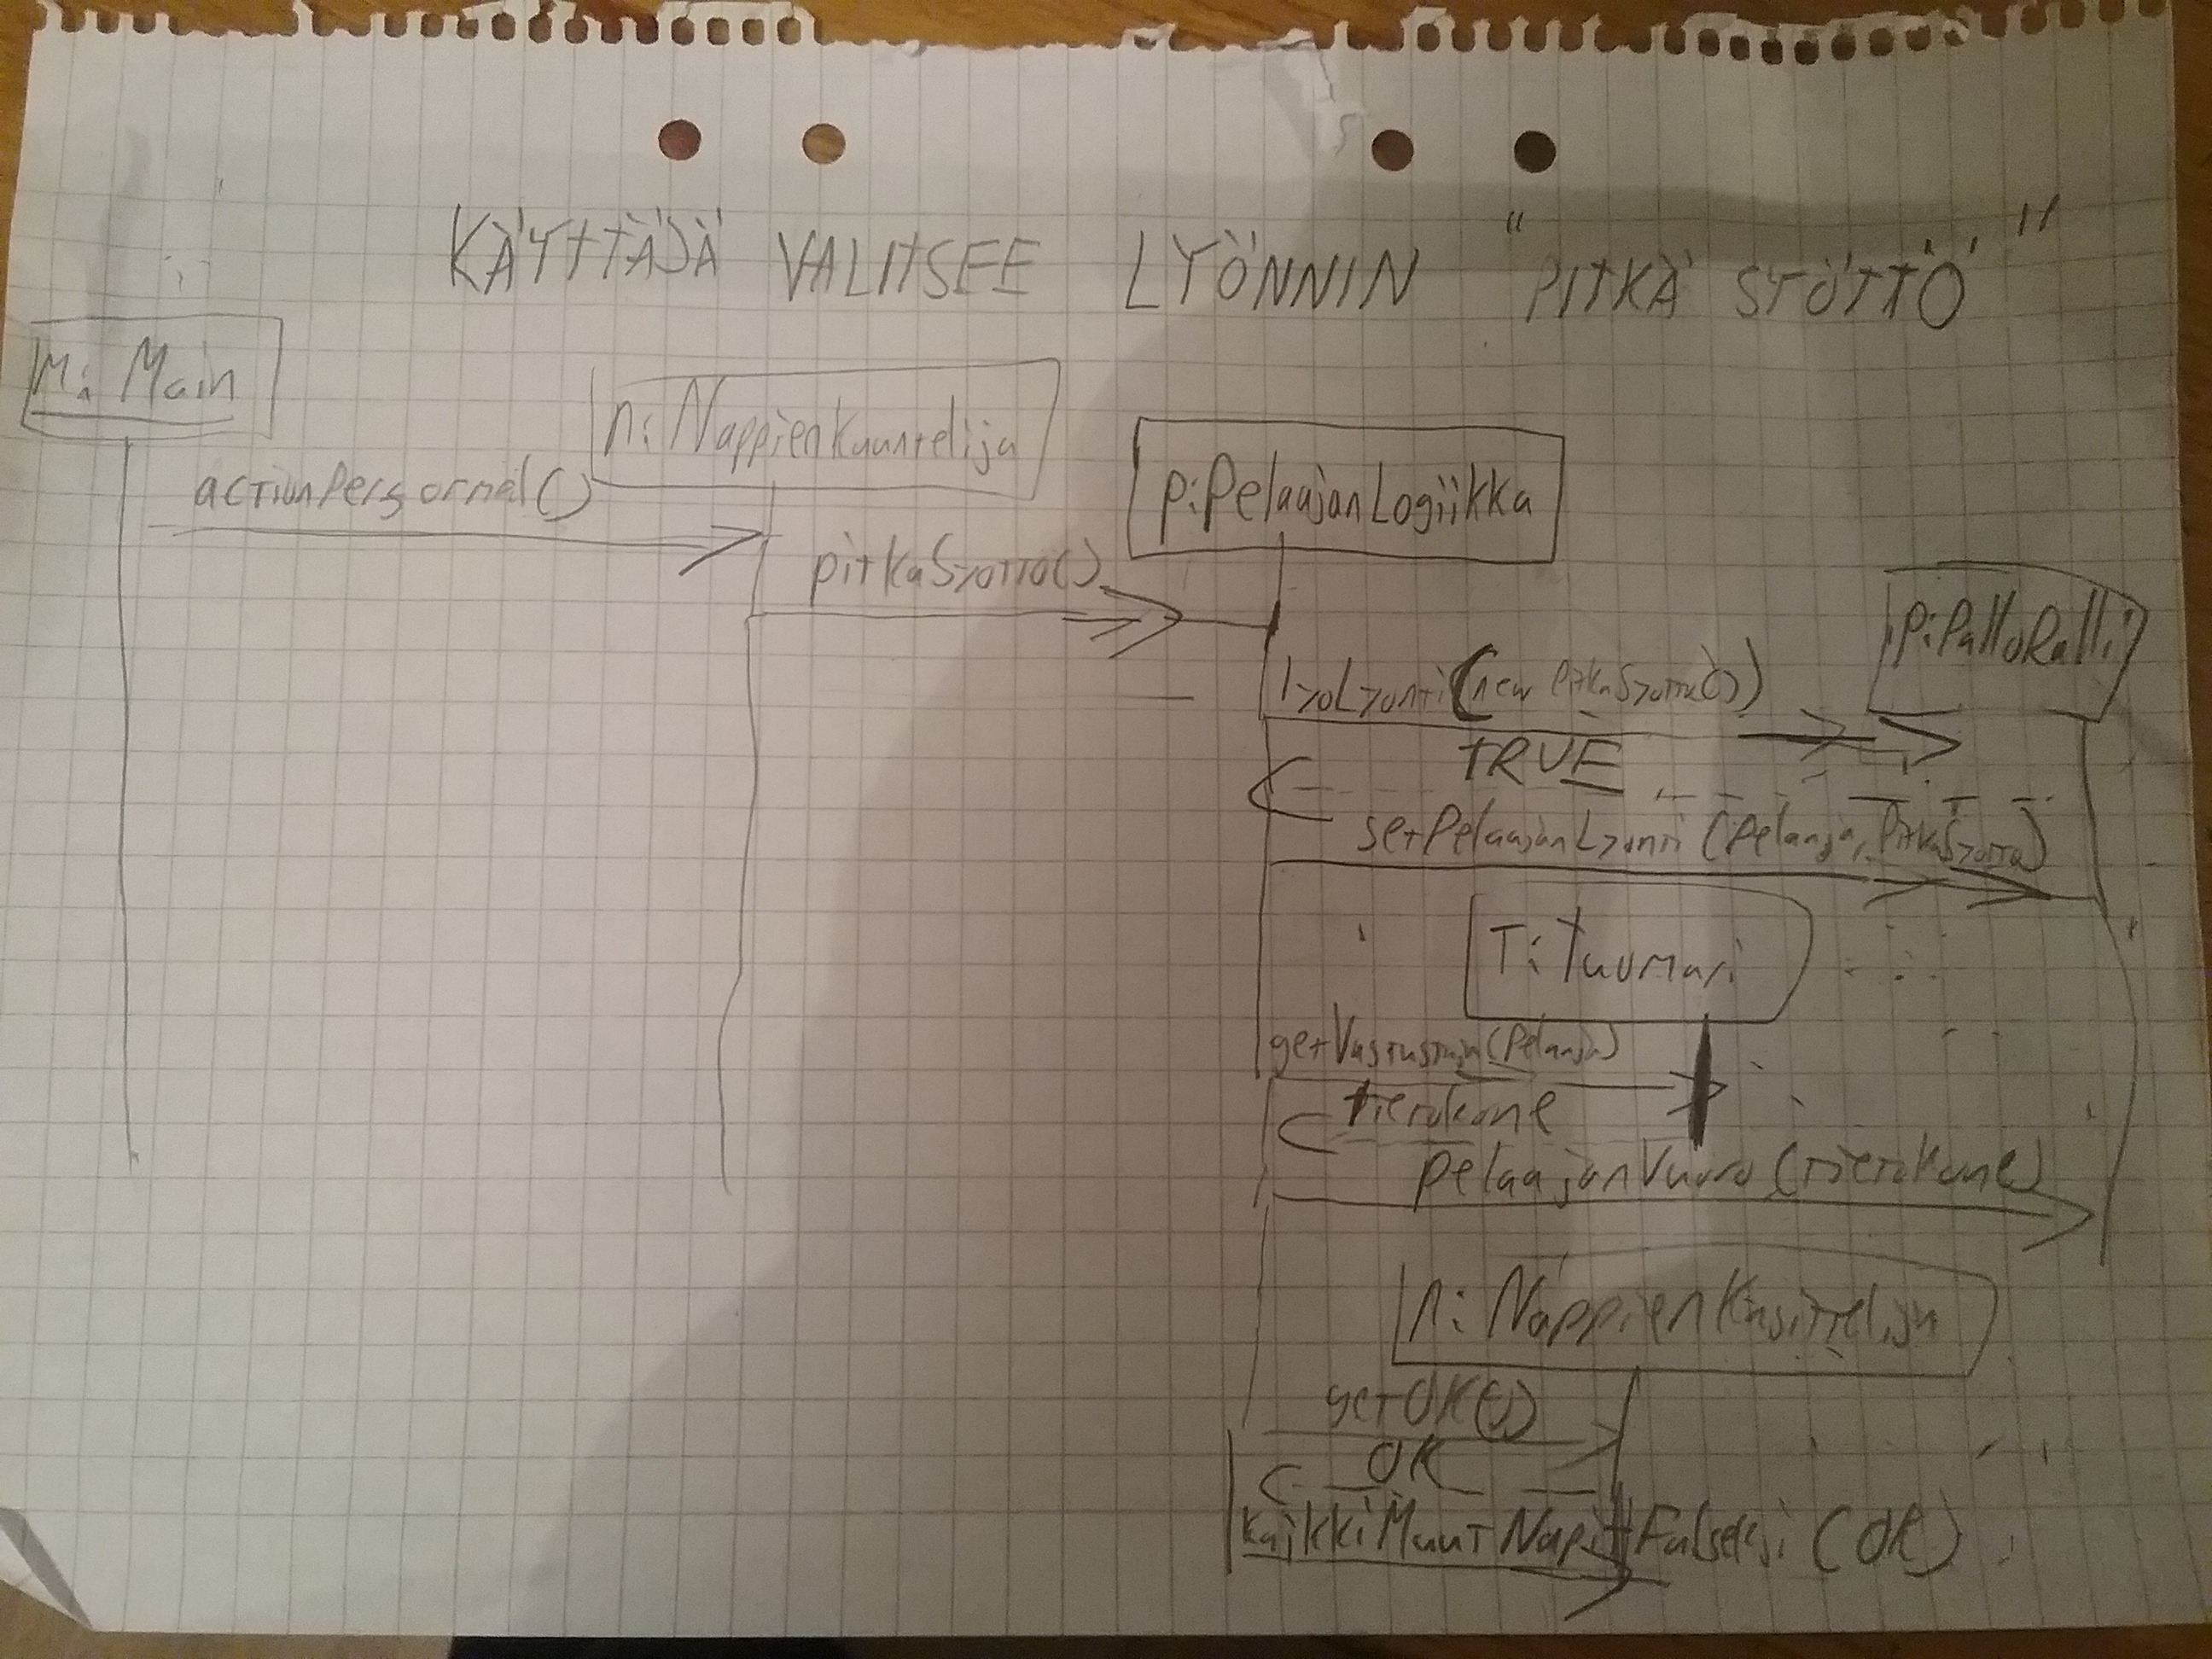 KÄYTTÄJÄ VALITSEE LYÖNNIN "PITKÄ SYÖTTÖ"
m: Main
n: NappienKuuntelija
actionPerformed()
p: PelaajanLogiikka
pitkaSyotto()
p: PalloRalli
lyoLyonti(new PitkaSyotto())
TRUE
setPelaajanLyonti(pelaaja, PitkaSyotto)
T: Tuomari
getVastustaja(Pelaaja)
tietokone
pelaajanVuoro(tietokone)
n: NappienKasittelija
getOK()
OK
kaikkiMuutNapitFalseksi(OK)